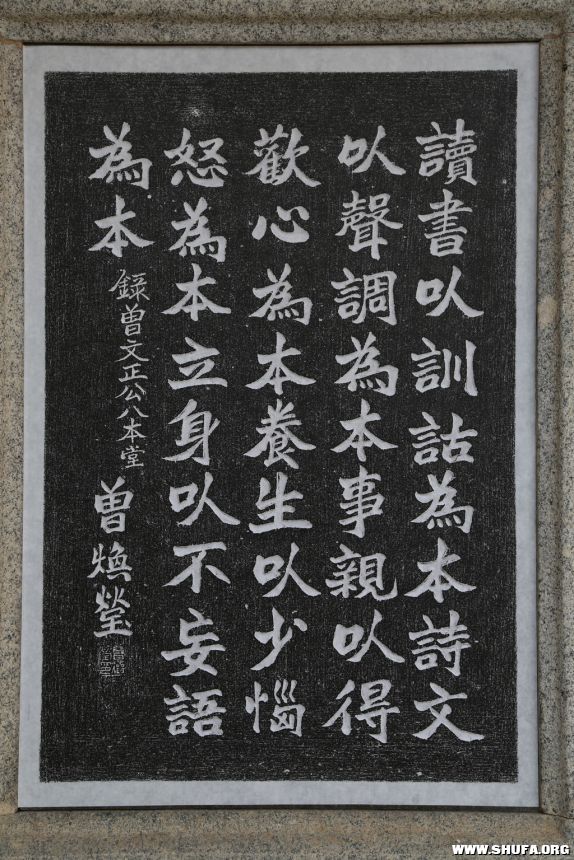 讀書以訓詁為本詩文
以聲調為本事親以得
歡心為本養生以少惱
怒為本立身以不妄語
為本
錄曾文正公八本堂
曾煥瑩
WWW.SHUFA.ORG